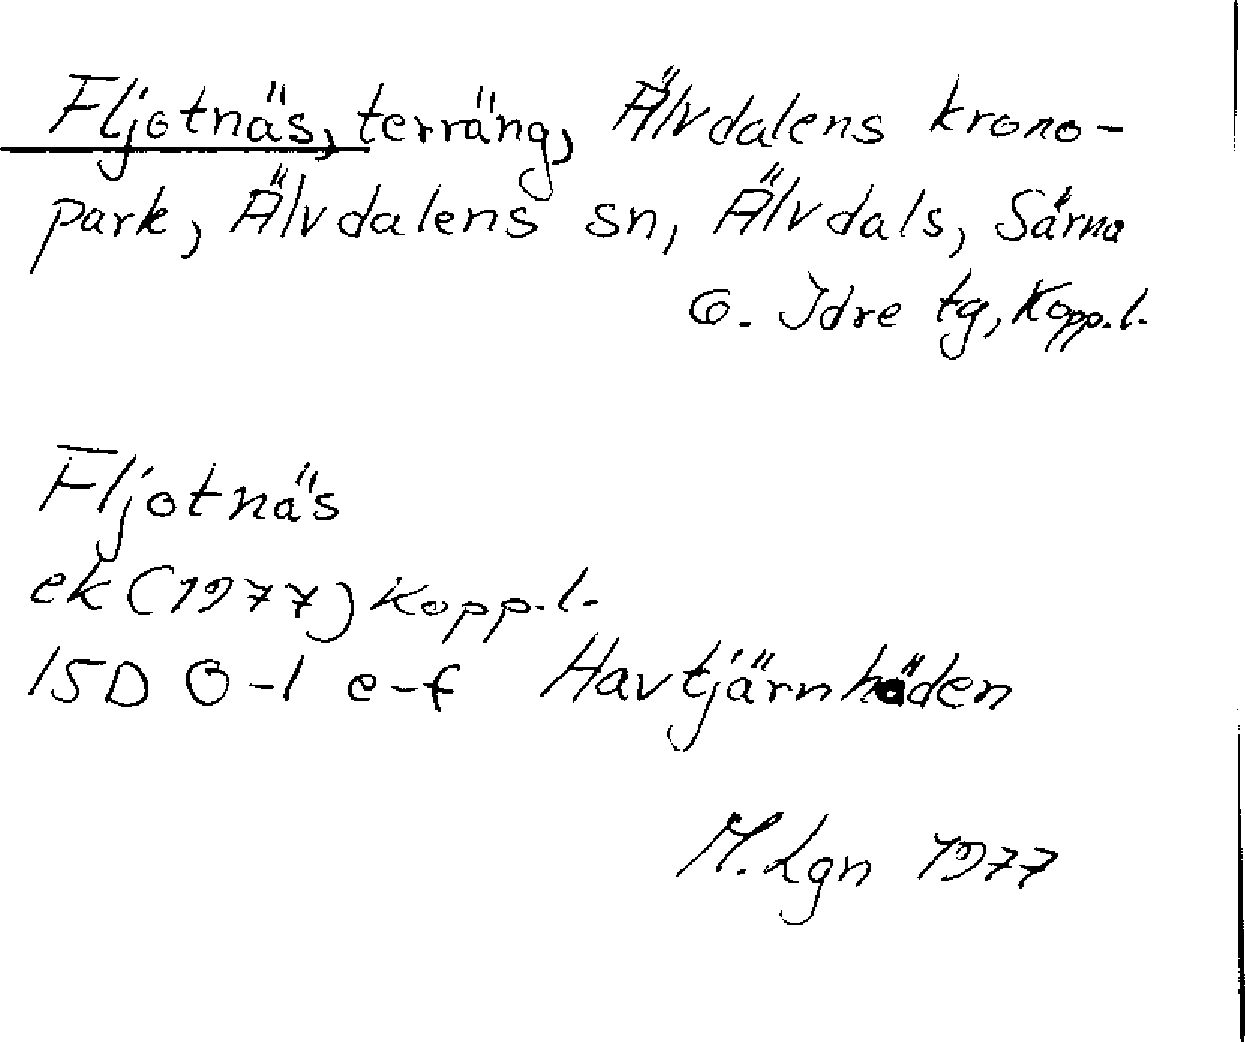 Fljotnäs, terräng, Älvdalens krono-
park, Älvdalens sn, Älvdals, Särna
o. Idre tg, Kopp.l.
Fljotnäs
ek (1977) Kopp.l.
15D 0-1 e-f Havtjärnhöden
M. Lgn 1977